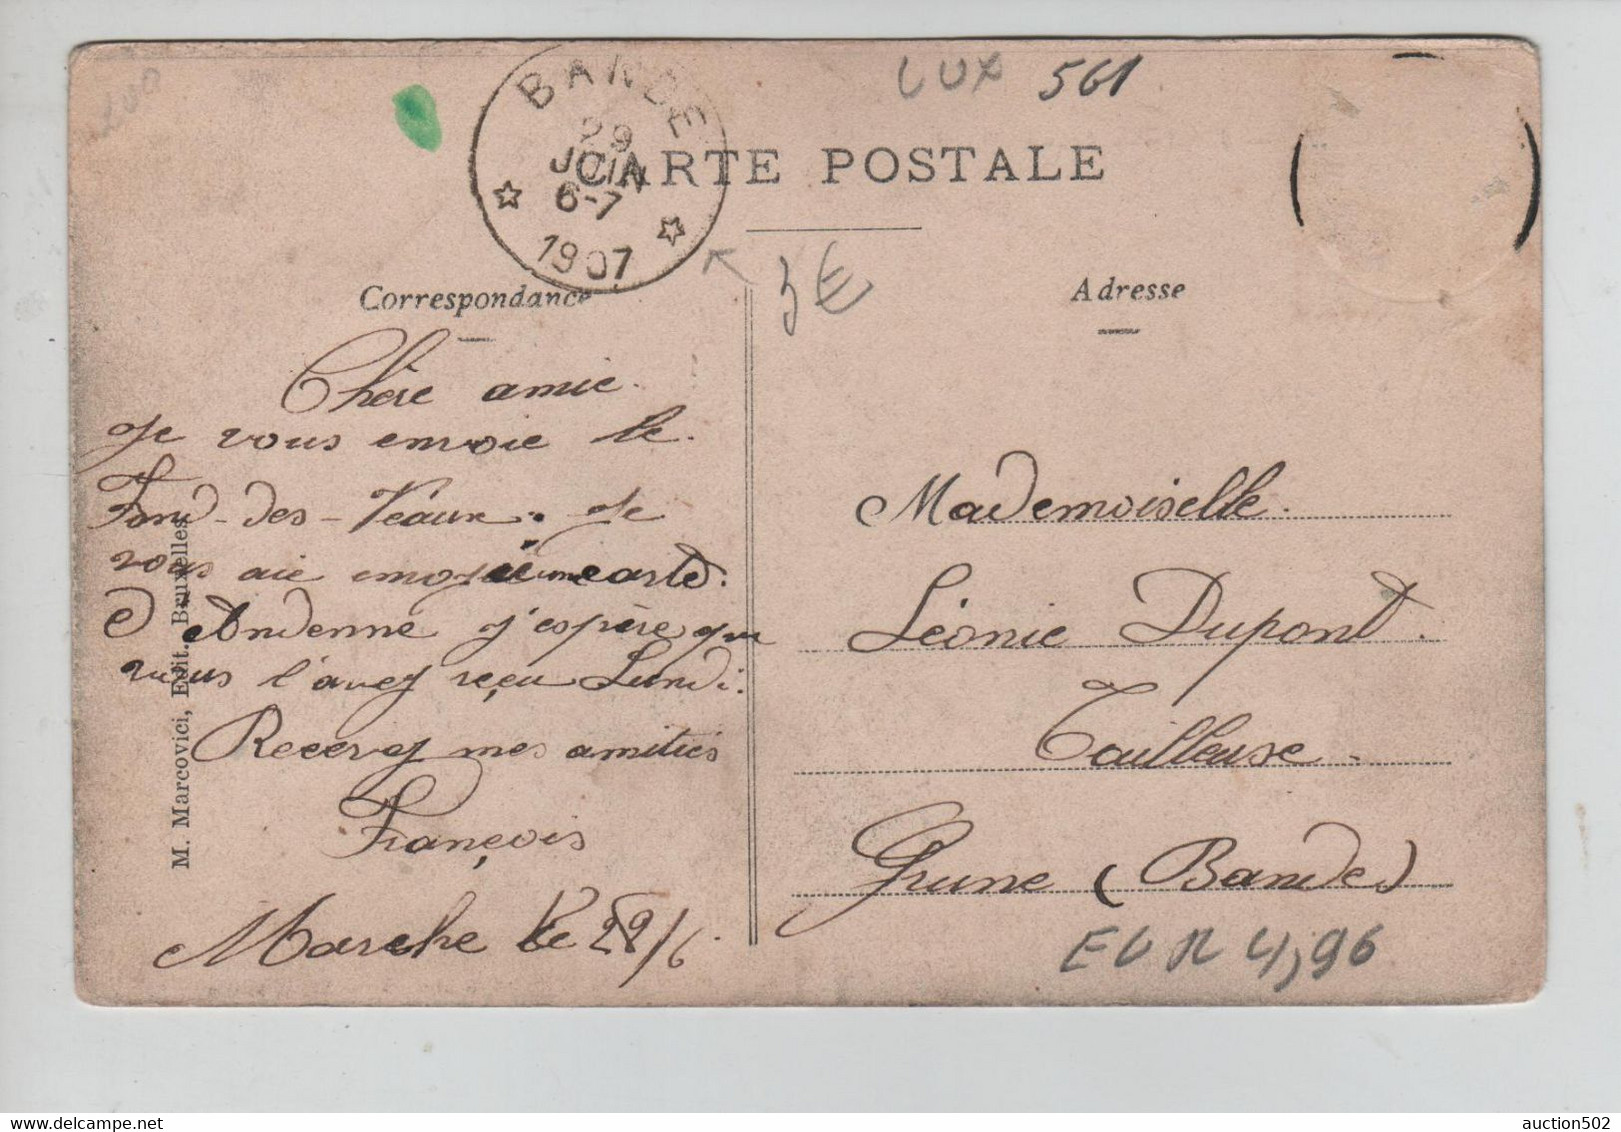 LUX 561
BANDE
29
JUIN
6-7
1907
CARTE POSTALE
3€
Correspondance
Adresse
Chère amie.
Je vous envoie le
Fond-des-Veaux. Je
vous aie envoyé une carte
d'Andenne j'espère que
vous l'avez reçu Lundi.
Recevez mes amitiés
François
Marche le 28/6.
M. Marcovici, Edit. Bruxelles
Mademoiselle.
Léonie Dupont.
Tailleuse.
Grune (Bande)
EUR 4,96
auction502